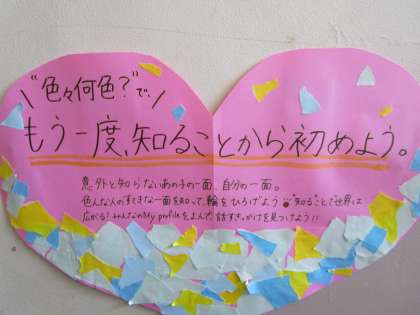 "色々何色?"で、
もう一度、知ることから初めよう。
意外と知らないあの子の一面、自分の一面。
色んな人のすてきな一面を知って、輪をひろげよう "知ることで世界は
広がる! みんなのMy profileをよんで、話すきっかけを見つけよう!!